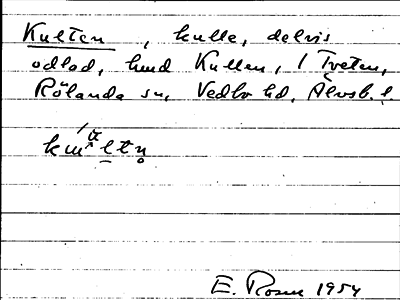 Kulten, kulle, delvis
odlad, hmd Kullen, 1 Tveten,
Rölanda sn, Vedbo hd, Älvsb. l.
E. Rosén 1954